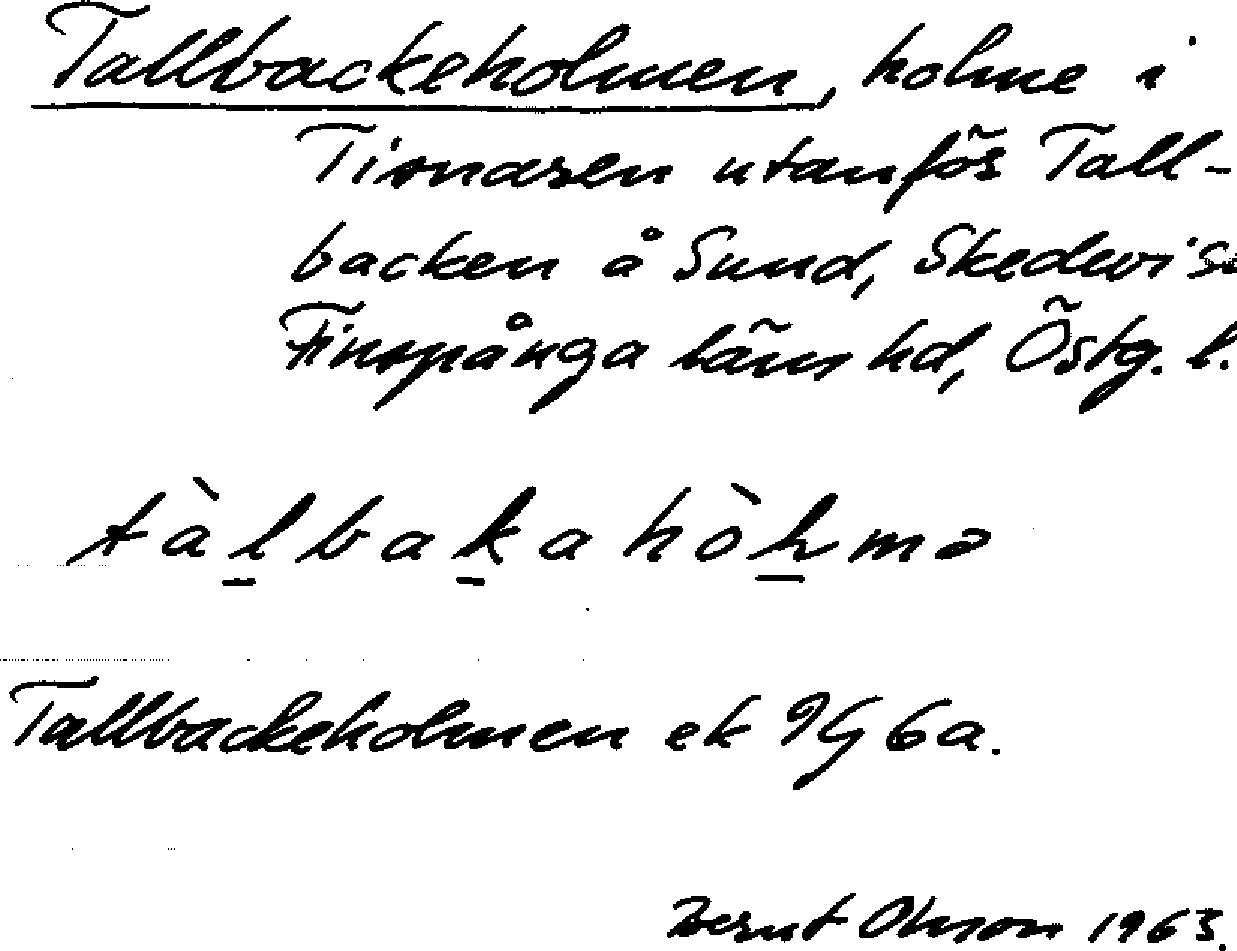 Tallbackeholmen, holme i
Tisnaren utanför Tall-
backen å Sund, Skedevi sn
Finspånga läns hd, Östg. l.
tàlbakahòlmə
Tallbackeholmen ek 9G 6a.
Bernt Olsson 1963.